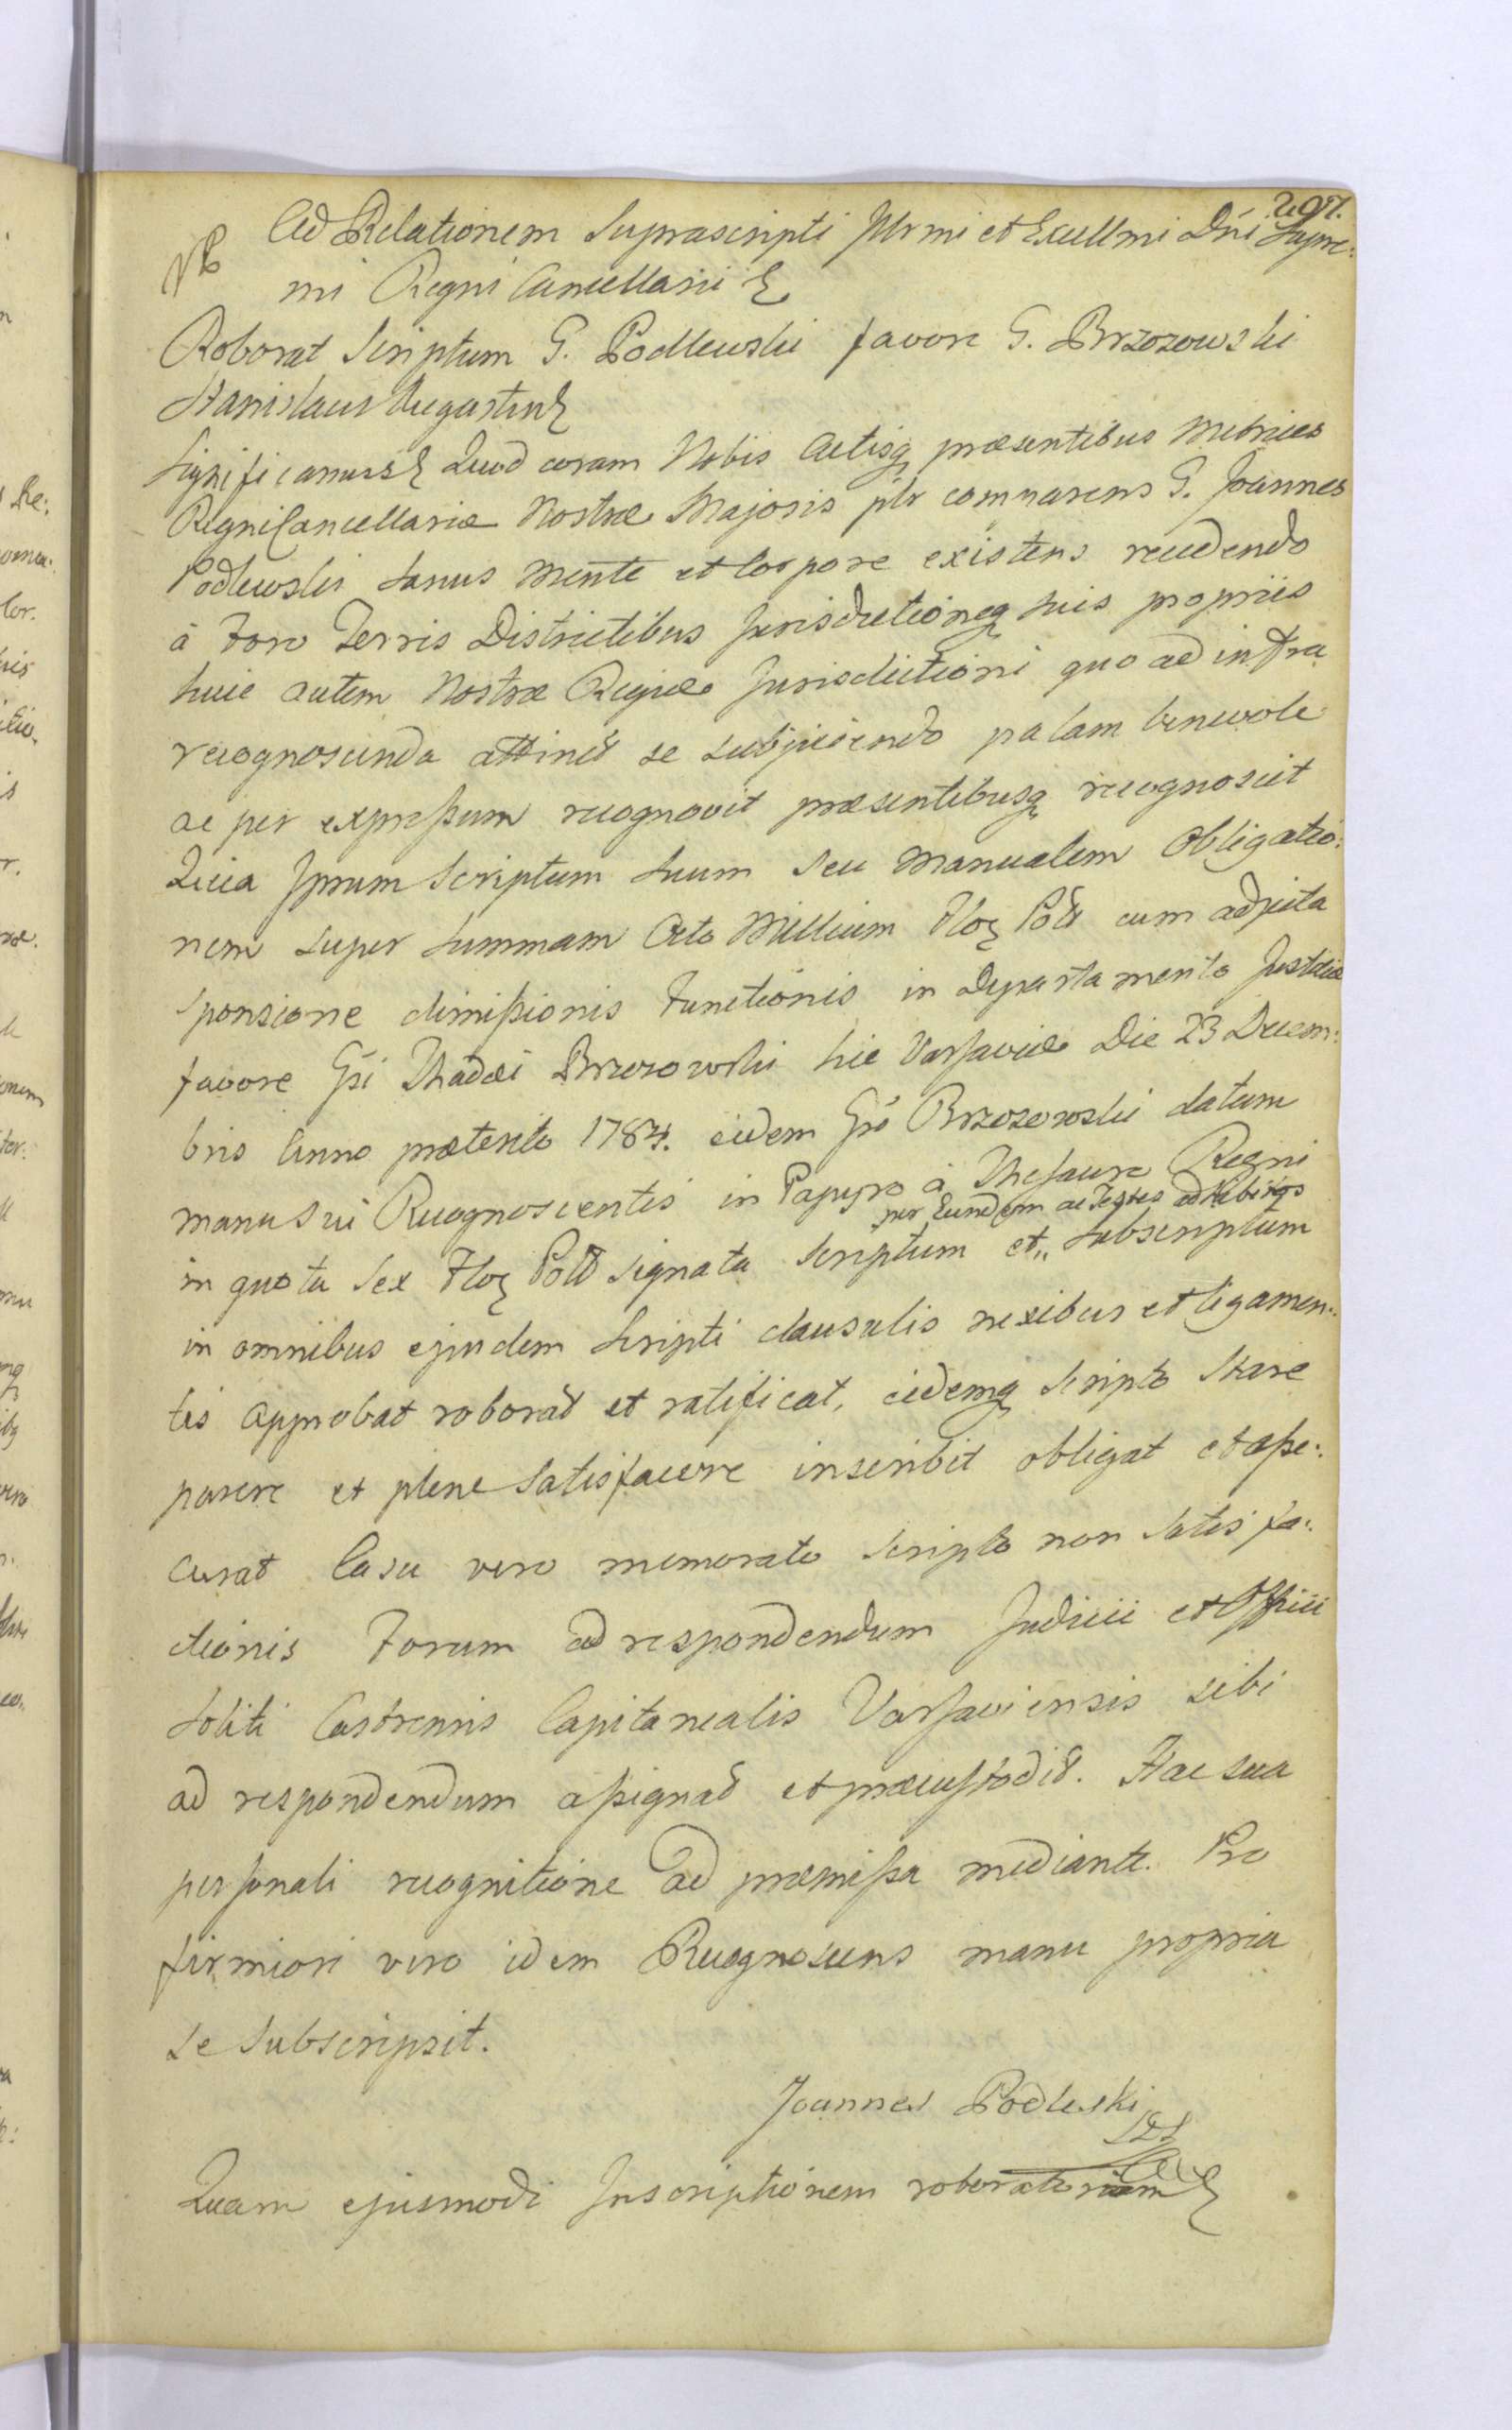 207.
Ad Relationem Suprascripti Illrmi et Excellmi Dni Supre:
mi Regni Cancellarii &
Roborat Scriptum G. Podlewski favore G. Brzozowski
Stanislaus Augustus &
Significamus & Quod coram Nobis Actisq præsentibus Metrices
Regni Cancellariæ Nostræ Majoris plr comparens G. Joannes
Podlewski Sanus Mente et Corpore existens recedendo
à Foro Terris Districtibus Jurisdictioneq suis propriis
huic autem Nostræ Regiæ Jurisdictioni quo ad infra
recognoscenda attinet se subjiciendo palam benevole
ac per expreßum recognovit præsentibusq recognoscit
Quia Ipsum Scriptum Suum seu Manualem Obligatio:
nem super Summam Octo Millium Floz Poll cum adjecta
Sponsione dimißionis Functionis in Departamento Justitiæ
favore Gsi Thadæi Brzozowski hic Varsaviæ Die 23 Decem:
bris Anno præterito 1784. eidem Gso Brzozowski datum
manu sui Recognoscentis in Papyro à Thesauro Regni
per Eundem ac Testes adhibitos
in quota Sex Floz Poll signata Scriptum et,, Subscriptum
in omnibus ejusdem Scripti clausulis nexibus et ligamen:
tis approbat roborat et ratificat, eidemq Scripto Stare
parere et plene Satisfacere inscribit obligat et aße:
curat Casu vero memorato Scripto non Satisfa:
ctionis Forum ad respondendum Judicii et Officii
Soliti Castrensis Capitanealis Varsaviensis sibi
ad respondendum aßignat et præcustodit. Hac sua
personali recognitione ad præmißa mediante. Pro
firmiori vero idem Recognoscens manu propria
se Subscripsit.
Joannes Podleski
Quam ejusmodi Inscriptionem roboratoriam &